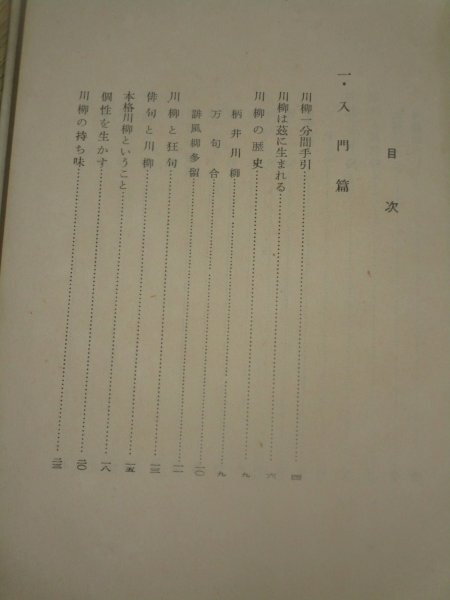 目次
一・入門篇
川柳一分間手引……四
川柳は茲に生まれる……六
川柳の歴史……九
柄井川柳……九
万句合……一〇
誹風柳多留……一一
川柳と狂句……一三
俳句と川柳……一五
本格川柳ということ……一八
個性を生かす……二〇
川柳の持ち味……二三